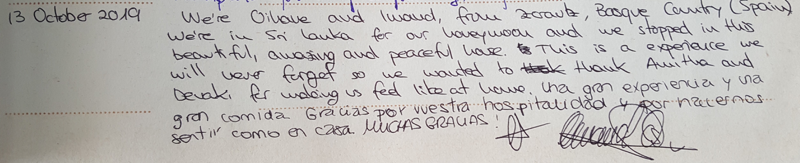 13 October 2019 We're Oihane and Imanol, from Zarautz, Basque Country (Spain)
We're in Sri Lanka for our honeymoon and we stopped in this
beautiful, amazing and peaceful house. This is a experience we
will never forget so we wanted to thank Amitha and
Devaki for making us feel like at home. Una gran experiencia y una
gran comida. Gracias por vuestra hospitalidad y por hacernos
sentir como en casa MUCHAS GRACIAS!